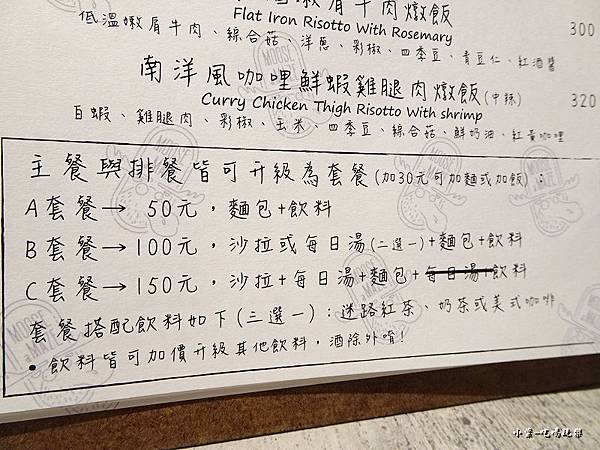 嫩肩牛肉燉飯
Flat Iron Risotto With Rosemary 300
低溫嫩肩牛肉、綜合菇、洋蔥、彩椒、四季豆、青豆仁、紅酒醬
南洋風咖哩鮮蝦雞腿肉燉飯(中辣)
Curry Chicken Thigh Risotto With shrimp 320
白蝦、雞腿肉、彩椒、玉米、四季豆、綜合菇、鮮奶油、紅黃咖哩
主餐與排餐皆可升級為套餐(加30元可加麵或加飯)：
A套餐→ 50元，麵包+飲料
B套餐→100元，沙拉或每日湯(二選一)+麵包+飲料
C套餐→150元，沙拉+每日湯+麵包+每日湯+飲料
套餐搭配飲料如下(三選一)：迷路紅茶、奶茶或美式咖啡
• 飲料皆可加價升級其他飲料，酒除外唷!
小紫-吃喝玩樂